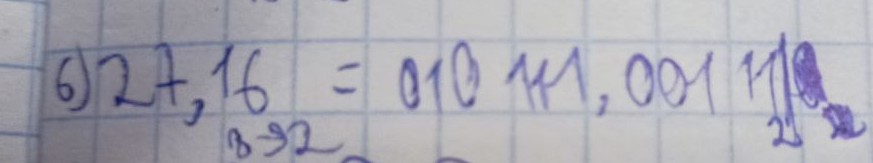 б) 27,16 8→2 = 010 111, 001 11 2